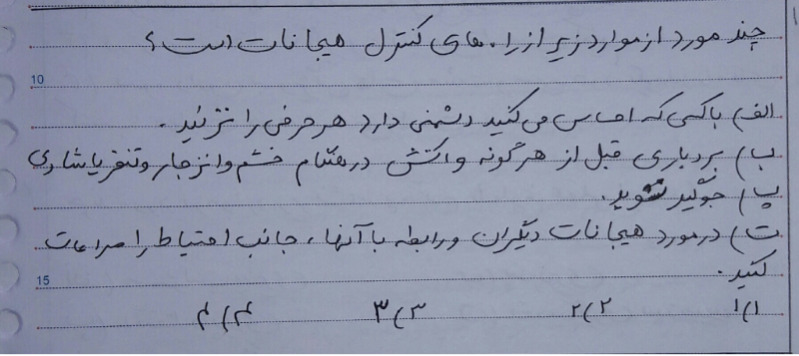 چند مورد از موارد زیر از راه های کنترل هیجانات است؟
10
الف) با کسی که احساس می کنید دشمنی دارد هر حرفی را نزنید.
ب) بردباری قبل از هرگونه واکنش در هنگام خشم و انزجار و تنفر یا شادی
پ) جوگیر نشوید.
ت) در مورد هیجانات دیگران و رابطه با آنها، جانب احتیاط را مراعات
کنید.
15
۱) ۱ ۲) ۲ ۳) ۳ ۴) ۴